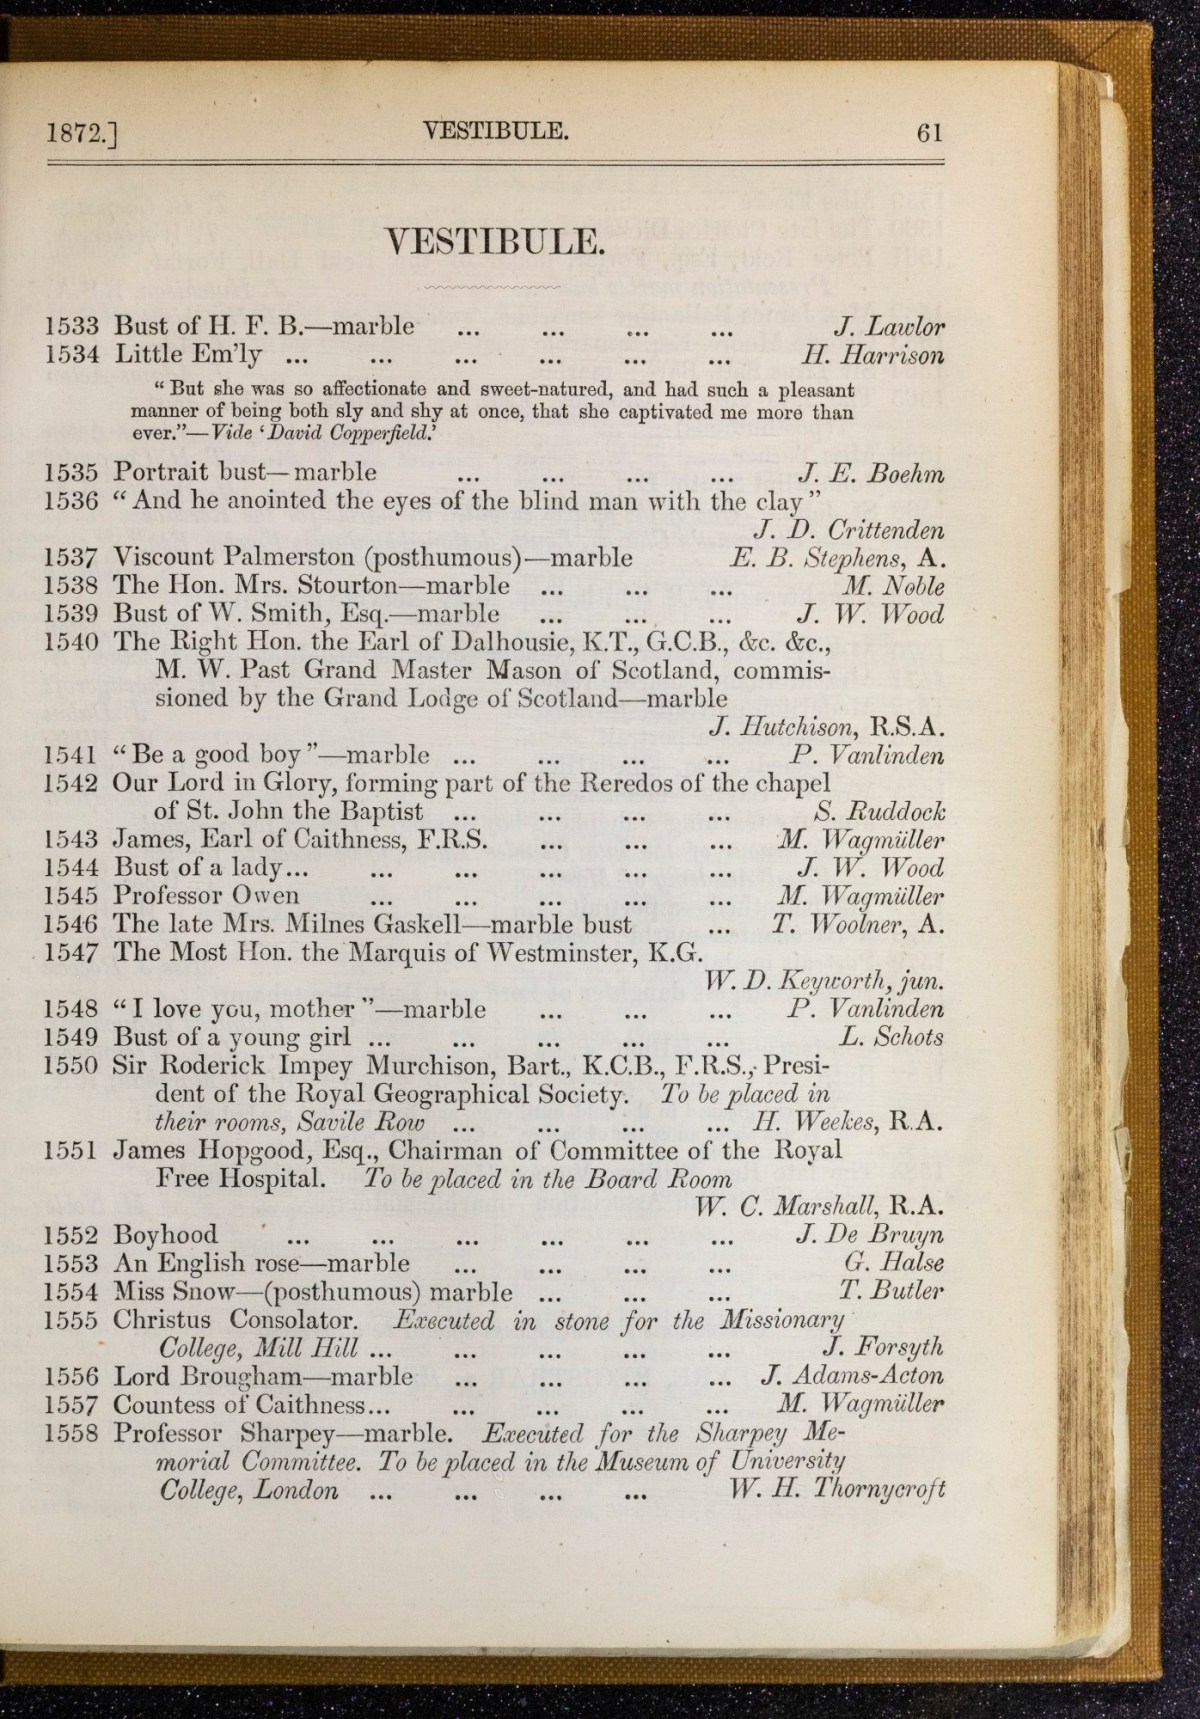 1872.] VESTIBULE. 61
VESTIBULE.
1533 Bust of H. F. B.—marble ... ... ... ... J. Lawlor
1534 Little Em'ly ... ... ... ... ... ... H. Harrison
“But she was so affectionate and sweet-natured, and had such a pleasant
manner of being both sly and shy at once, that she captivated me more than
ever.”—Vide ‘David Copperfield.’
1535 Portrait bust—marble ... ... ... ... J. E. Boehm
1536 “And he anointed the eyes of the blind man with the clay”
J. D. Crittenden
1537 Viscount Palmerston (posthumous)—marble E. B. Stephens, A.
1538 The Hon. Mrs. Stourton—marble ... ... ... M. Noble
1539 Bust of W. Smith, Esq.—marble ... ... ... J. W. Wood
1540 The Right Hon. the Earl of Dalhousie, K.T., G.C.B., &c. &c.,
M. W. Past Grand Master Mason of Scotland, commis-
sioned by the Grand Lodge of Scotland—marble
J. Hutchison, R.S.A.
1541 “Be a good boy”—marble ... ... ... ... P. Vanlinden
1542 Our Lord in Glory, forming part of the Reredos of the chapel
of St. John the Baptist ... ... ... ... S. Ruddock
1543 James, Earl of Caithness, F.R.S. ... ... ... M. Wagmüller
1544 Bust of a lady... ... ... ... ... ... J. W. Wood
1545 Professor Owen ... ... ... ... ... M. Wagmüller
1546 The late Mrs. Milnes Gaskell—marble bust ... T. Woolner, A.
1547 The Most Hon. the Marquis of Westminster, K.G.
W. D. Keyworth, jun.
1548 “I love you, mother”—marble ... ... ... P. Vanlinden
1549 Bust of a young girl ... ... ... ... ... L. Schots
1550 Sir Roderick Impey Murchison, Bart., K.C.B., F.R.S., Presi-
dent of the Royal Geographical Society. To be placed in
their rooms, Savile Row ... ... ... ... H. Weekes, R.A.
1551 James Hopgood, Esq., Chairman of Committee of the Royal
Free Hospital. To be placed in the Board Room
W. C. Marshall, R.A.
1552 Boyhood ... ... ... ... ... ... J. De Bruyn
1553 An English rose—marble ... ... ... ... G. Halse
1554 Miss Snow—(posthumous) marble ... ... ... T. Butler
1555 Christus Consolator. Executed in stone for the Missionary
College, Mill Hill ... ... ... ... ... J. Forsyth
1556 Lord Brougham—marble ... ... ... ... J. Adams-Acton
1557 Countess of Caithness... ... ... ... ... M. Wagmüller
1558 Professor Sharpey—marble. Executed for the Sharpey Me-
morial Committee. To be placed in the Museum of University
College, London ... ... ... ... W. H. Thornycroft